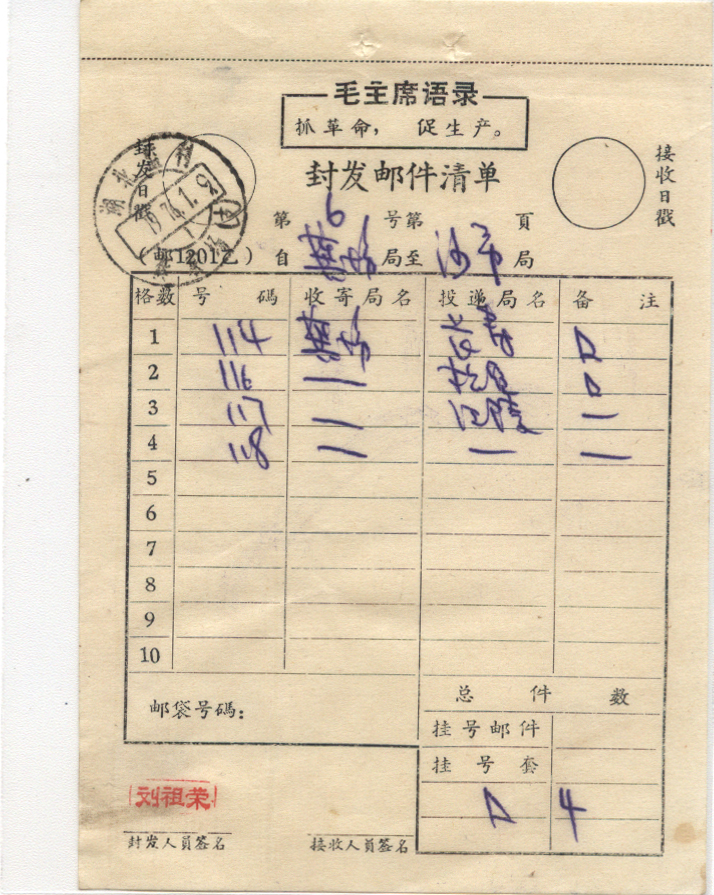 毛主席语录
抓革命， 促生产。
封发邮件清单
封发日戳
接收日戳
湖北
1974.1.9
第 6 号第 頁
（邮1201乙） 自 局至 沙市 局
格數 号 碼 收寄局名 投递局名 备 注
1 114
2 116 一 松滋
3 117 一 江陵 一
4 118 一 一 一
5
6
7
8
9
10
邮袋号碼：
总 件 數
挂号邮件
挂 号 套
4
刘祖荣
封发人员签名
接收人员签名